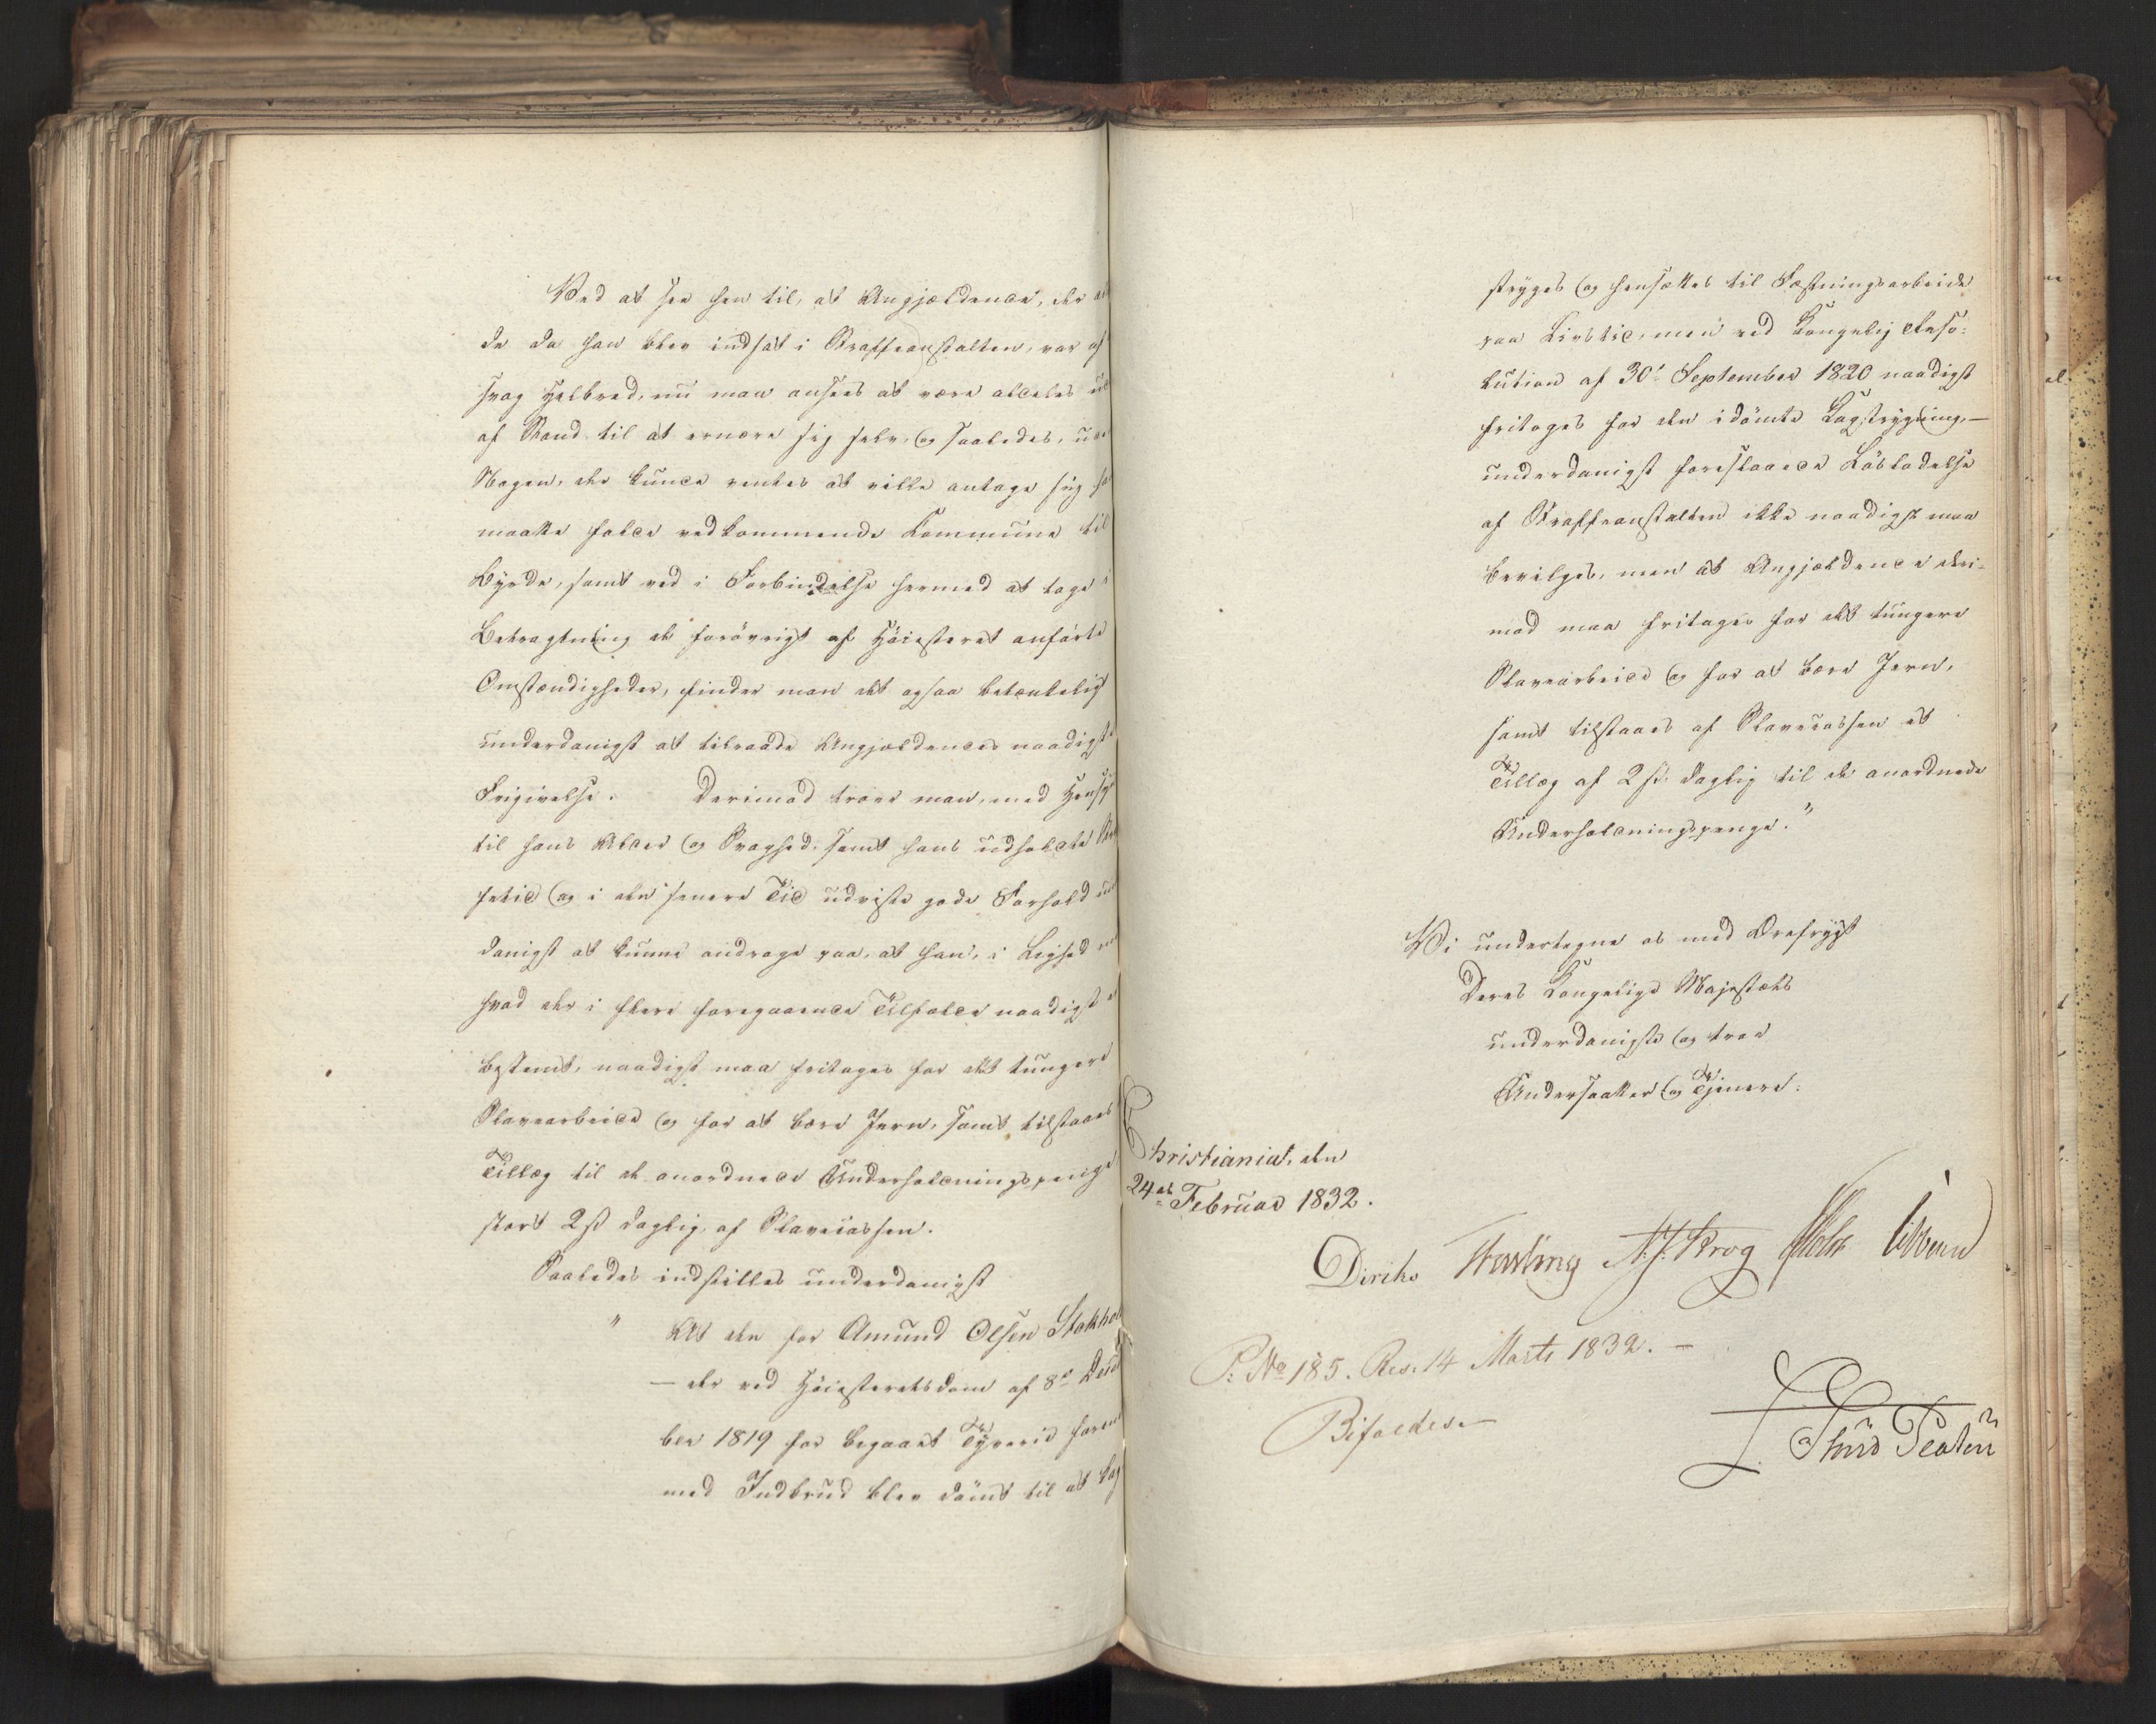 Ved at see hen til, at Angjældende, der al
de da han blev indsat i Straffeanstalten, var af
svag Helbred, nu maa ansees at være aldeles ud
af Stand til at ernære sig selv, og saaledes, uden
Nogen, der kunde ventes at ville antage sig ha
maatte falde vedkommende Kommune til
Byrde, samt ved i Forbindelse hermed at tage i
Betragtning de forövrigt af Höiesteret anförte
Omstændigheder, finder man det ogsaa betænkeligt
underdanigst at tilraade Angjældendes naadigste
Frigivelse. Derimod troer man, med Hensyn
til hans Alder og Svaghed, samt hans udholdte
setid og i den senere Tid udviste gode Forhold un
danigst at kunne andrage paa, at han, i Lighed m
hvad der i flere foregaaende Tilfælde naadigst er
bestemt, naadigst maa fritages for det tungere
Slavearbeide og for at bære Jern, samt tilstaaes
Tillæg til de anordnede Underholdningspenge
stort 2 ß daglig, af Slavecassen.
Saaledes indstilles underdanigst
" At den for Amund Olsen Stokhol
— der ved Höiesteretsdom af 8de Decem
ber 1819 for begaaet Tyverie foren
med Indbrud blev dömt til at kag
stryges og hensættes til Fæstningsarbeide
paa Livstid, men ved Kongelig Reso-
lution af 30te September 1820 naadigst
fritages for den idömte Kagstrygning, —
underdanigst foreslaaede Lösladelse
af Straffeanstalten ikke naadigst maa
bevilges, men at Angjældende der-
mod maa fritages for det tungere
Slavearbeide og for at bære Jern,
samt tilstaaes af Slavecassen et
Tillæg af 2 ß daglig til de anordnede
Underholdningspenge."
Vi undertegne os med Ærefrygt
Deres Kongelige Majestæts
underdanigste og troe
Undersaatter og Tjenere.
Christiania, den
24de Februar 1832.
Diriks Hasling A. J. Krog Holst Vibbern
P: No 185. Res. 14 Marts 1832. —
Bifaldes. —
Thurs Platen